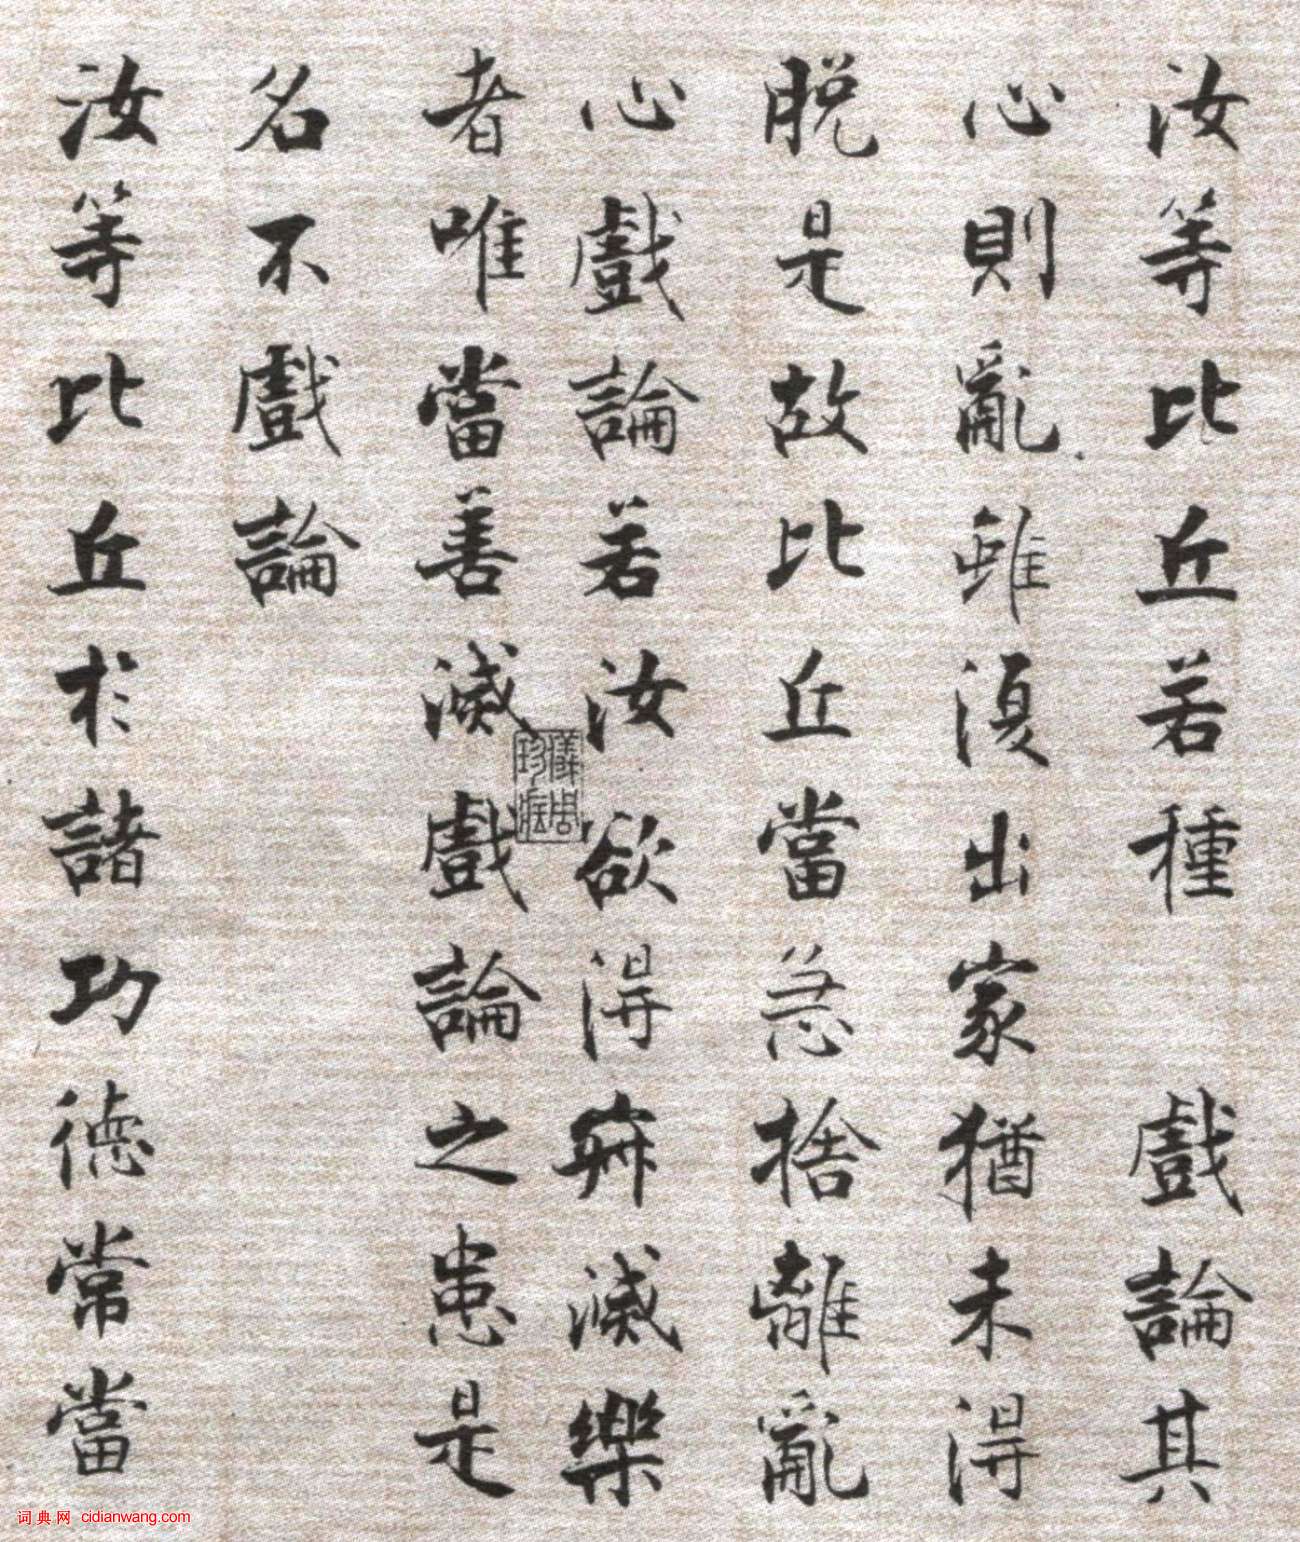 汝等比丘若種 戲論其
心則亂雖復出家猶未得
脱是故比丘當急捨離亂
心戲論若汝欲得寂滅樂
者唯當善滅戲論之患是
名不戲論
汝等比丘於諸功德常當
儀周珍藏
词典网 cidianwang.com